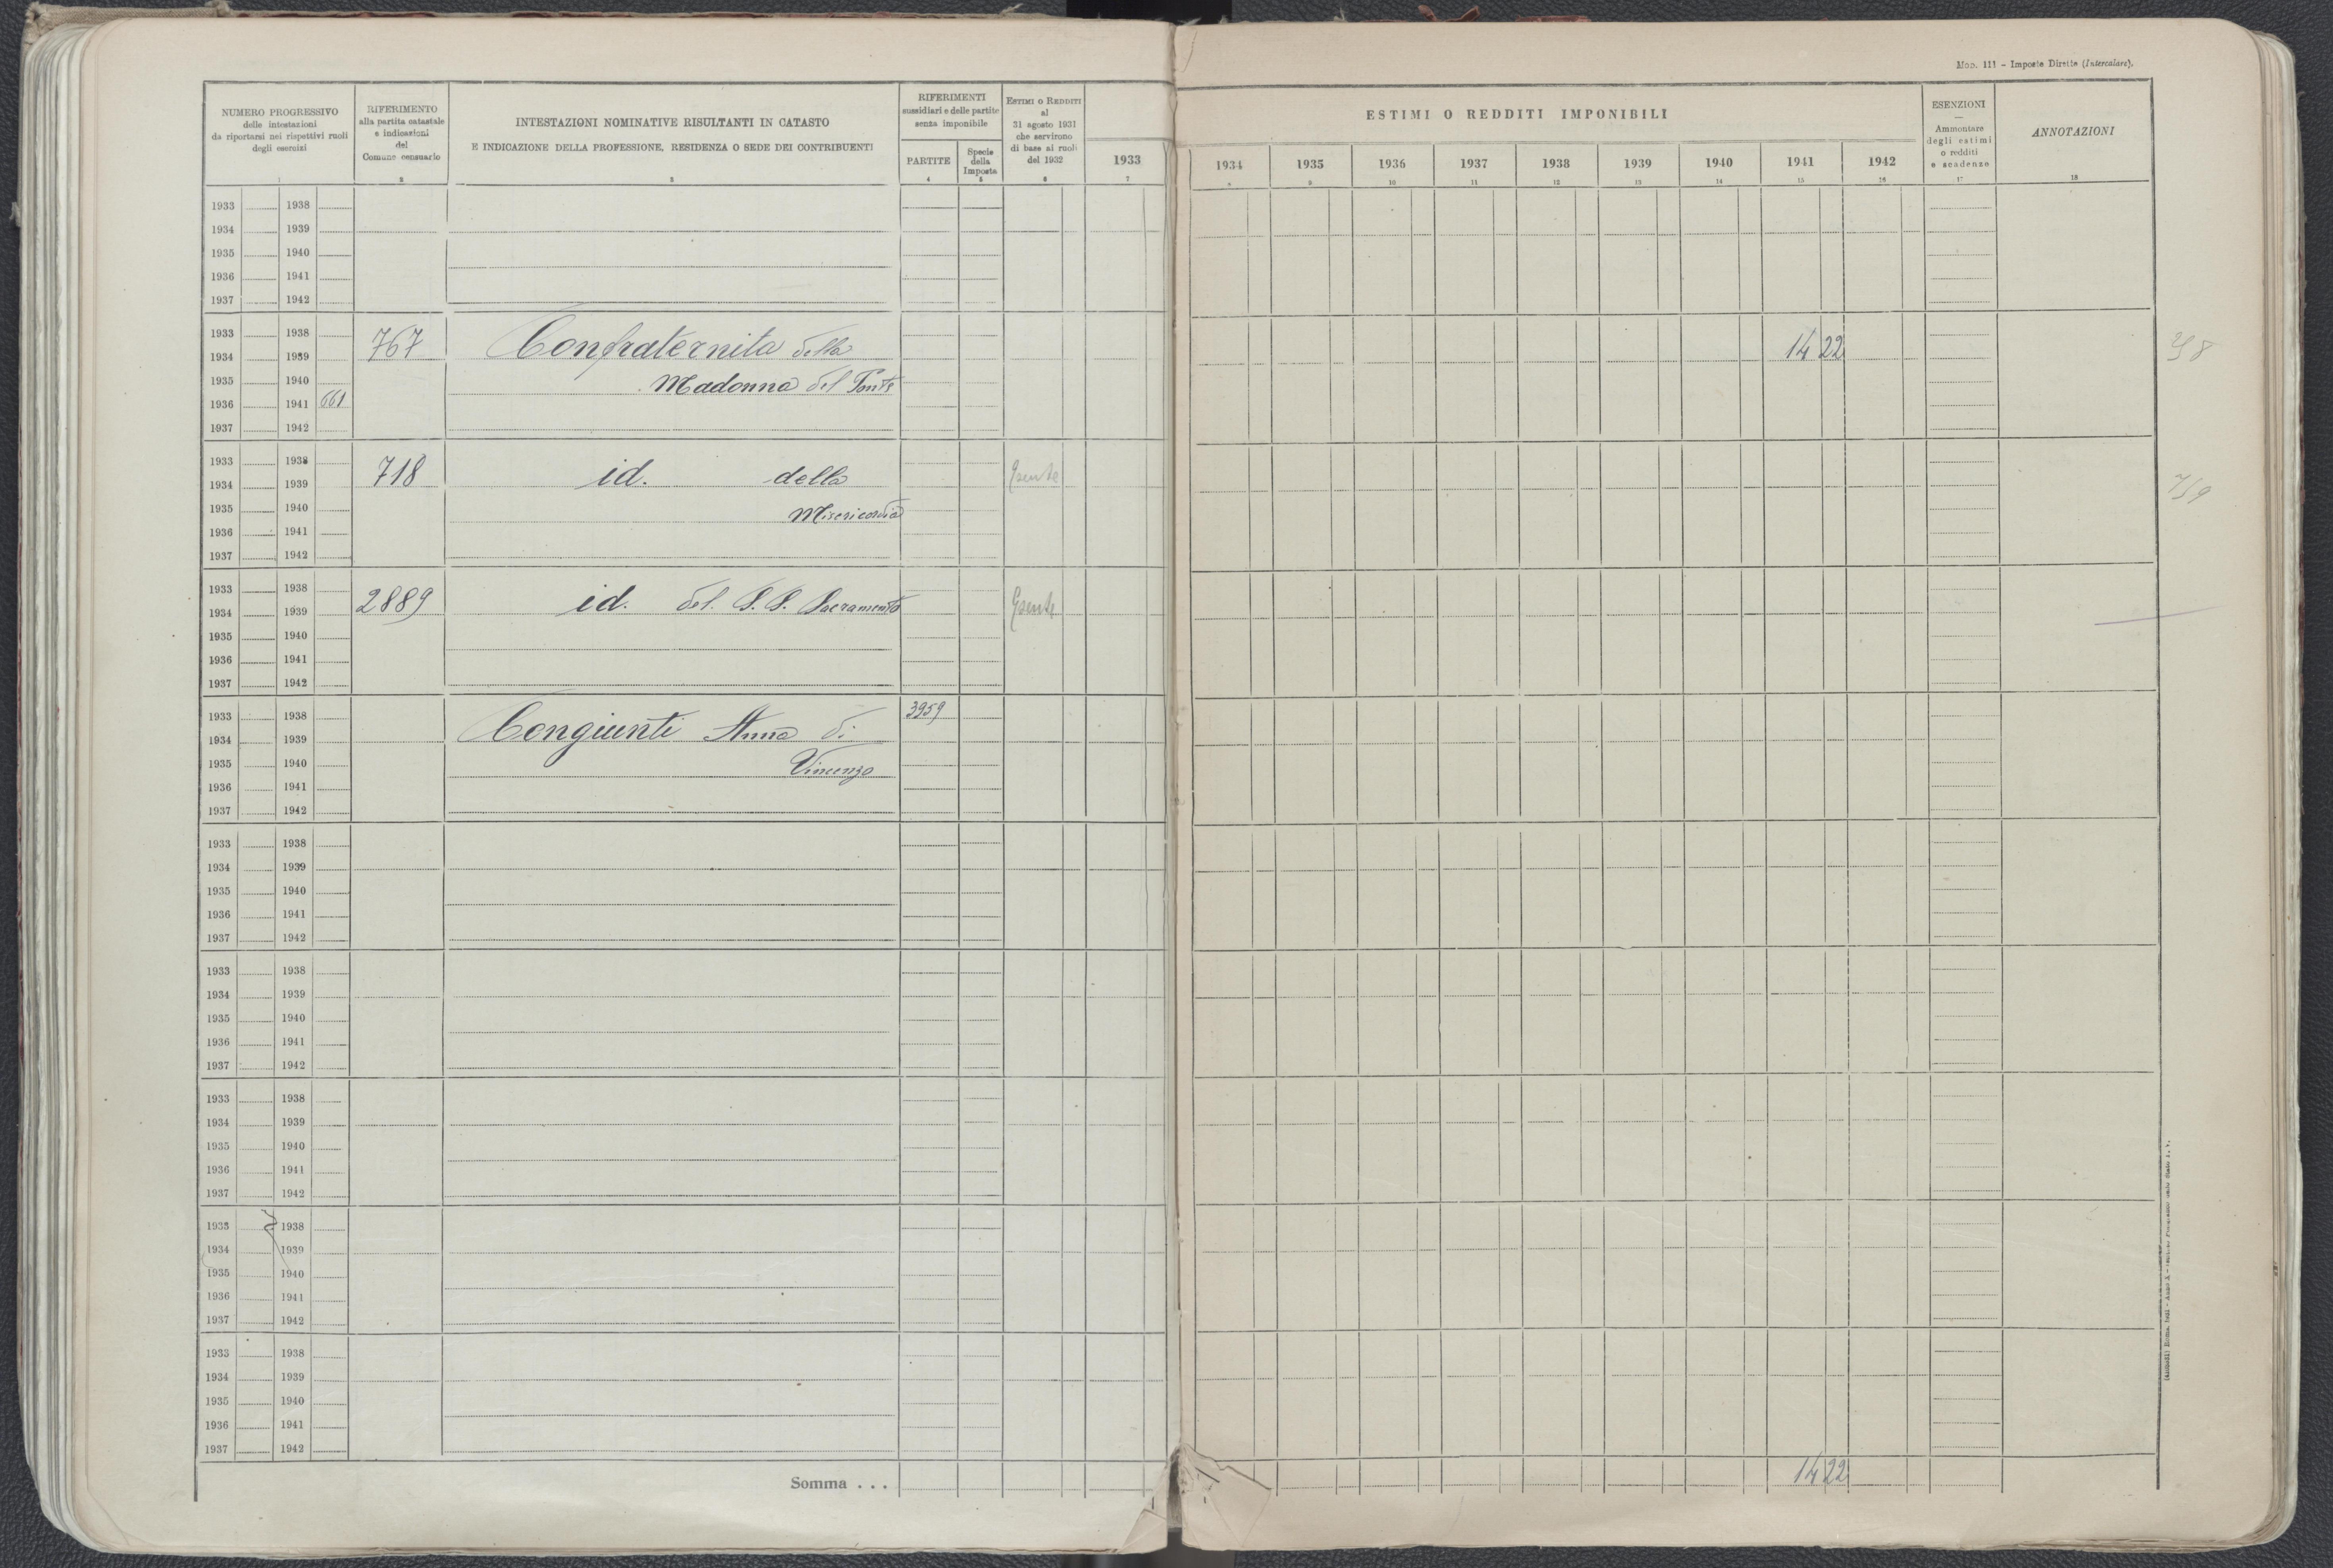 Mod. 111 - Imposte Dirette (Intercalare).
NUMERO PROGRESSIVO
delle intestazioni
da riportarsi nei rispettivi ruoli
degli esercizi
1
RIFERIMENTO
alla partita catastale
e indicazioni
del
Comune censuario
2
INTESTAZIONI NOMINATIVE RISULTANTI IN CATASTO
E INDICAZIONE DELLA PROFESSIONE, RESIDENZA O SEDE DEI CONTRIBUENTI
3
RIFERIMENTI
sussidiari e delle partite
senza imponibile
PARTITE
4
Specie
della
Imposta
5
ESTIMI O REDDITI
al
31 agosto 1931
che servirono
di base ai ruoli
del 1932
6
1933
7
ESTIMI O REDDITI IMPONIBILI
1934 1935 1936 1937 1938 1939 1940 1941 1942
8 9 10 11 12 13 14 15 16
ESENZIONI
—
Ammontare
degli estimi
o redditi
e scadenze
17
ANNOTAZIONI
18
1933 1938
1934 1939
1935 1940
1936 1941
1937 1942
1933 1938
1934 1939 767 Confraternita della 14 22
1935 1940 Madonna del Ponte
1936 1941 661
1937 1942
1933 1938
1934 1939 718 id. della Esente 759
1935 1940 Misericordia
1936 1941
1937 1942
1933 1938
1934 1939 2889 id. del S.S. Sacramento Esente
1935 1940
1936 1941
1937 1942
1933 1938 3959
1934 1939 Congiunti Anna di
1935 1940 Vincenzo
1936 1941
1937 1942
1933 1938
1934 1939
1935 1940
1936 1941
1937 1942
1933 1938
1934 1939
1935 1940
1936 1941
1937 1942
1933 1938
1934 1939
1935 1940
1936 1941
1937 1942
1933 1938
1934 1939
1935 1940
1936 1941
1937 1942
1933 1938
1934 1939
1935 1940
1936 1941
1937 1942
Somma . . . 14 22